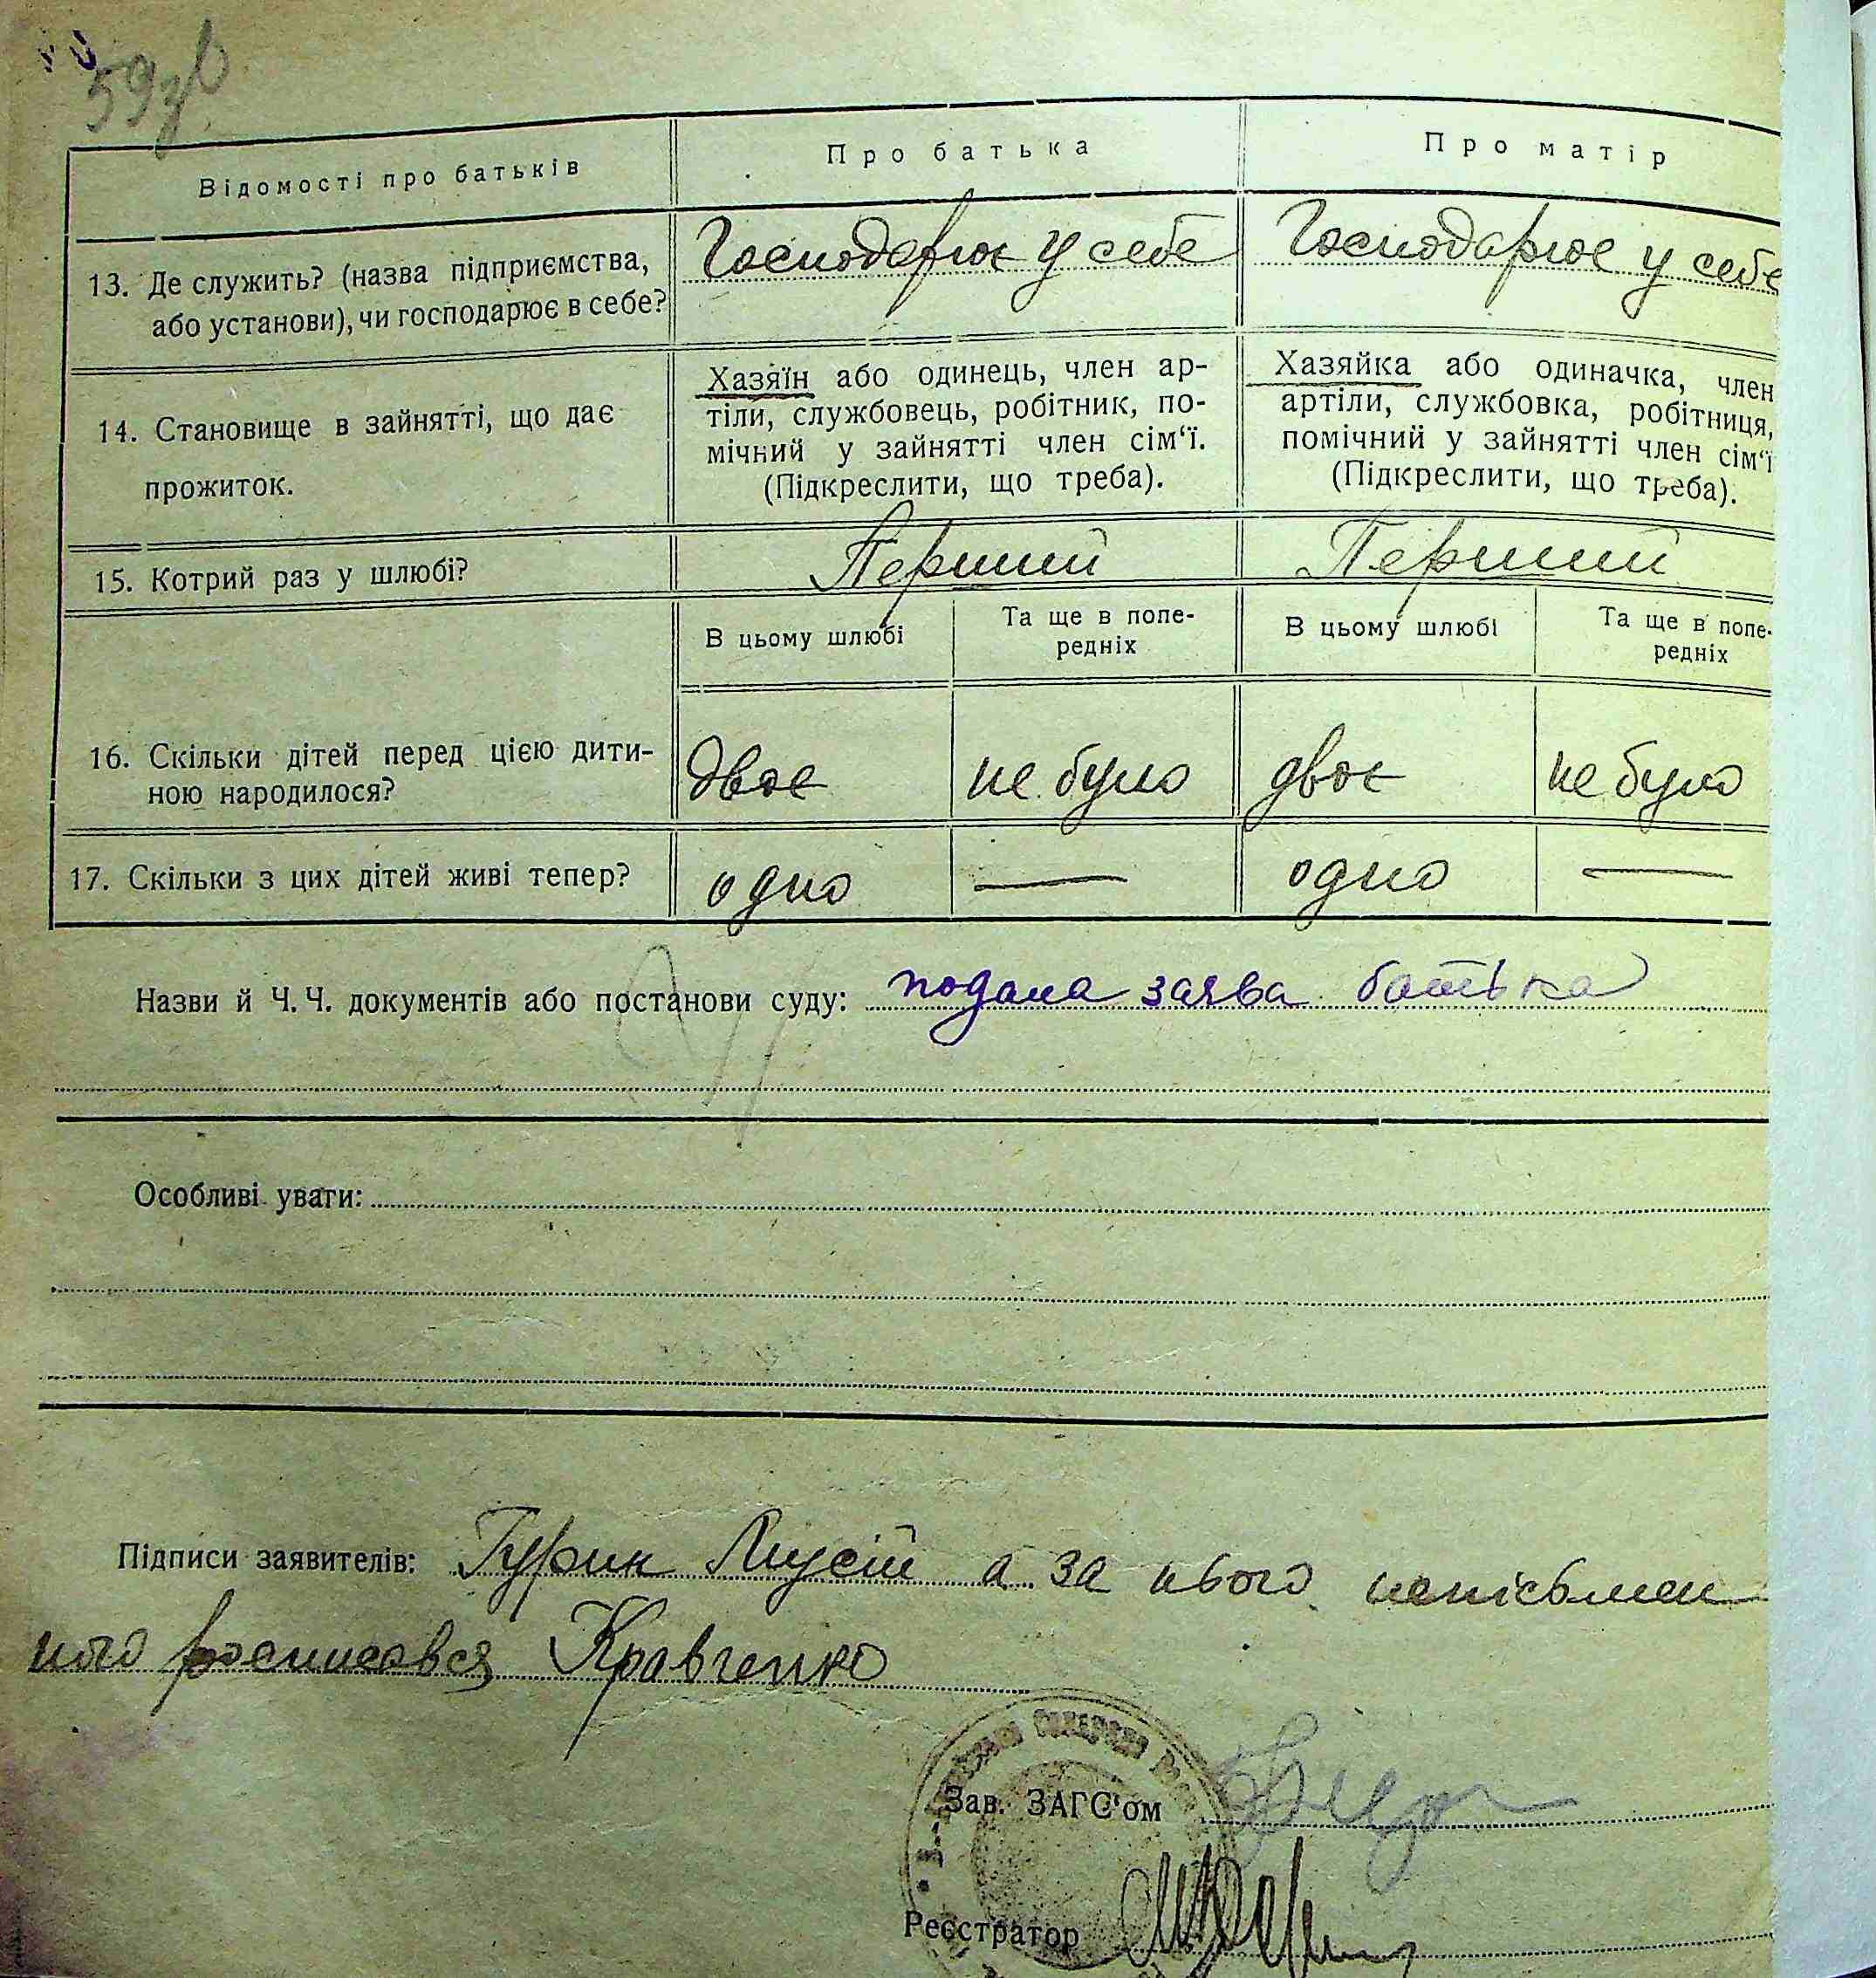 59зв
Відомості про батьків
Про батька
Про матір
13. Де служить? (назва підприємства,
або установи), чи господарює в себе?
Господарює у себе
Господарює у себе
14. Становище в зайнятті, що дає
прожиток.
Хазяїн або одинець, член ар-
тіли, службовець, робітник, по-
мічний у зайнятті член сім‘ї.
(Підкреслити, що треба).
Хазяйка або одиначка, член
артіли, службовка, робітниця,
помічний у зайнятті член сім‘ї
(Підкреслити, що треба).
15. Котрий раз у шлюбі?
Перший
Перший
В цьому шлюбі
Та ще в попе-
редніх
В цьому шлюбі
Та ще в попе-
редніх
16. Скільки дітей перед цією дити-
ною народилося?
двоє
не було
двоє
не було
17. Скільки з цих дітей живі тепер?
одно
—
одно
—
Назви й Ч. Ч. документів або постанови суду: подана заява батька
Особливі уваги:
Підписи заявителів: Гурин Мусій а за нього неписьмен
ного росписався Кравченко
Зав. ЗАГС'ом
Реєстратор